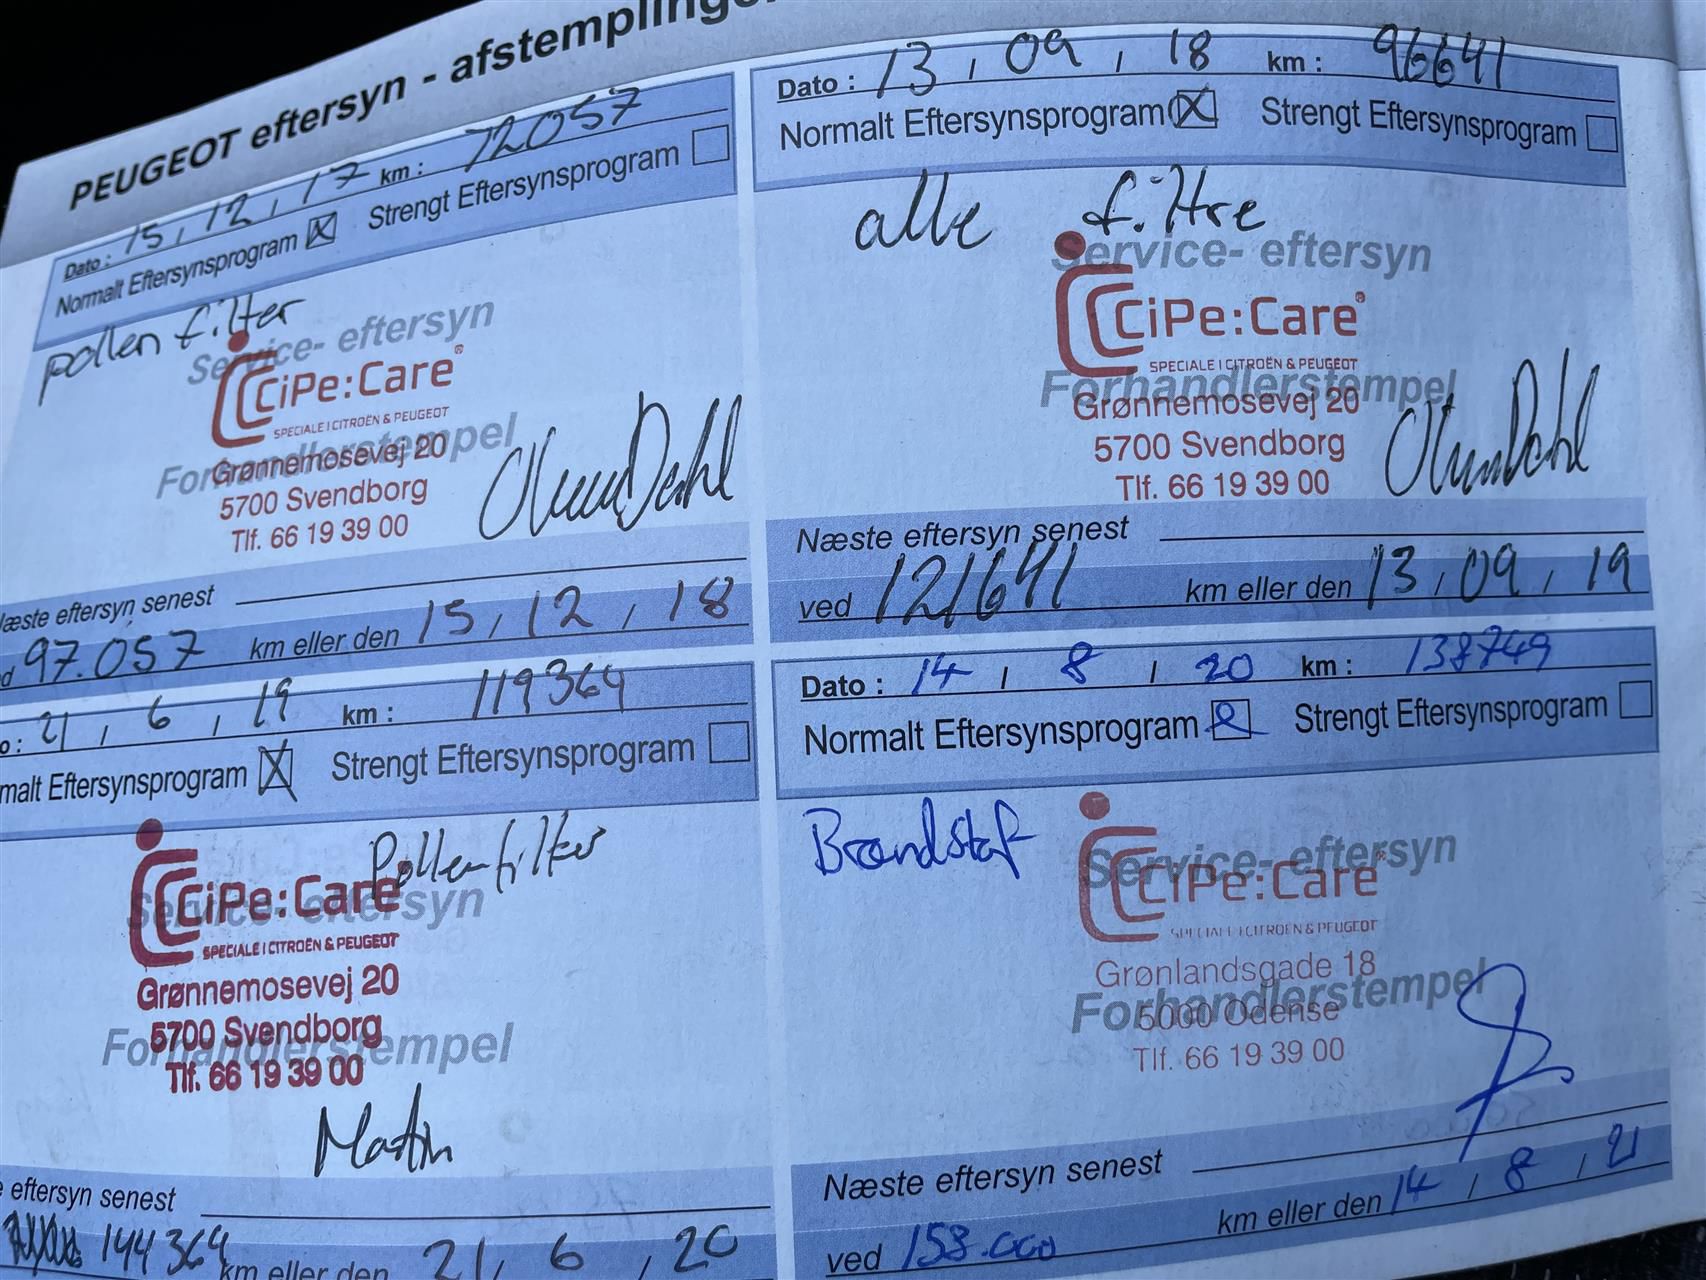 PEUGEOT eftersyn - afstemplinge
Dato : 15, 12, 17 km : 72057
Normalt Eftersynsprogram Strengt Eftersynsprogram
pollen filter
Service- eftersyn
CiPe:Care®
SPECIALE I CITROËN & PEUGEOT
Forhandlerstempel
Grønnemosevej 20
5700 Svendborg
Tlf. 66 19 39 00
Næste eftersyn senest
97.057 km eller den 15, 12, 18
Dato : 13, 09, 18 km : 96641
Normalt Eftersynsprogram Strengt Eftersynsprogram
alle filtre
Service- eftersyn
CiPe:Care®
SPECIALE I CITROËN & PEUGEOT
Forhandlerstempel
Grønnemosevej 20
5700 Svendborg
Tlf. 66 19 39 00
Næste eftersyn senest
ved 121641 km eller den 13, 09, 19
o : 21, 6, 19 km : 119364
malt Eftersynsprogram Strengt Eftersynsprogram
Pollenfilter
Service- eftersyn
CiPe:Care
SPECIALE I CITROËN & PEUGEOT
Grønnemosevej 20
5700 Svendborg
Forhandlerstempel
Tlf. 66 19 39 00
Martin
eftersyn senest
144364 km eller den 21, 6, 20
Dato : 14, 8, 20 km : 138749
Normalt Eftersynsprogram Strengt Eftersynsprogram
Brændstof
Service- eftersyn
CiPe:Care®
SPECIALE I CITROËN & PEUGEOT
Grønlandsgade 18
Forhandlerstempel
5000 Odense
Tlf. 66 19 39 00
Næste eftersyn senest
ved 158.000 km eller den 14, 8, 21